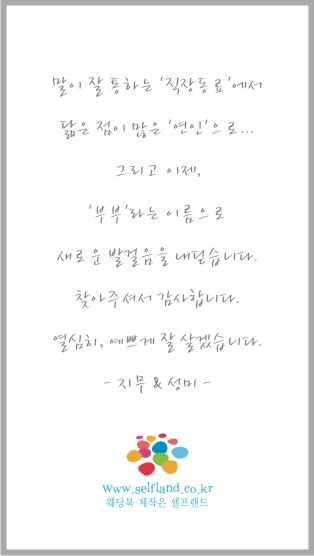 말이 잘 통하는 '직장동료'에서
닮은 점이 많은 '연인'으로...
그리고 이제,
'부부'라는 이름으로
새로운 발걸음을 내딛습니다.
찾아주셔서 감사합니다.
열심히, 예쁘게 잘 살겠습니다.
- 지무 & 성미 -
www.selfland.co.kr
웨딩북 제작은 셀프랜드